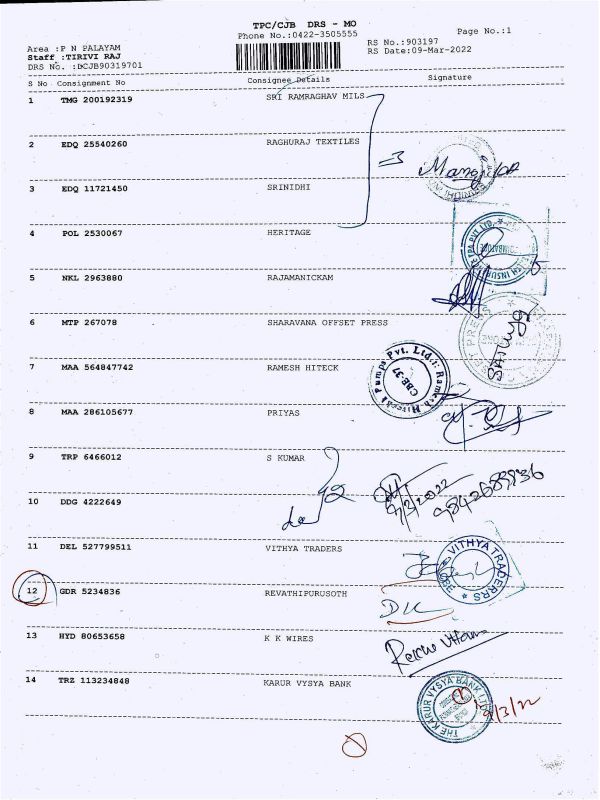 TPC/CJB DRS - MO
Phone No.:0422-3505555
Page No.:1
Area :P N PALAYAM
RS No.:903197
Staff :TIRIVI RAJ
RS Date:09-Mar-2022
DRS No. :DCJB90319701
S No Consignment No Consignee Details Signature
1 TMG 200192319 SRI RAMRAGHAV MILS
2 EDQ 25540260 RAGHURAJ TEXTILES
3 EDQ 11721450 SRINIDHI
4 POL 2530067 HERITAGE
5 NKL 2963880 RAJAMANICKAM
6 MTP 267078 SHARAVANA OFFSET PRESS
7 MAA 564847742 RAMESH HITECK
Ramesh Hiteck Pumps Pvt. Ltd.
CBE-37
8 MAA 286105677 PRIYAS
9 TRP 6466012 S KUMAR
9/3/2022
10 DDG 4222649
11 DEL 527799511 VITHYA TRADERS
VITHYA TRADERRS
12 GDR 5234836 REVATHIPURUSOTH
13 HYD 80653658 K K WIRES
14 TRZ 113234848 KARUR VYSYA BANK
THE KARUR VYSYA BANK LTD